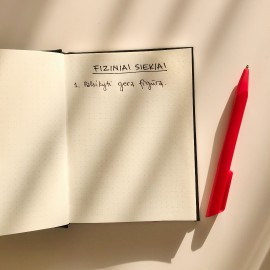 FIZINIAI SIEKIAI
1. Palaikyti gerą figūrą.